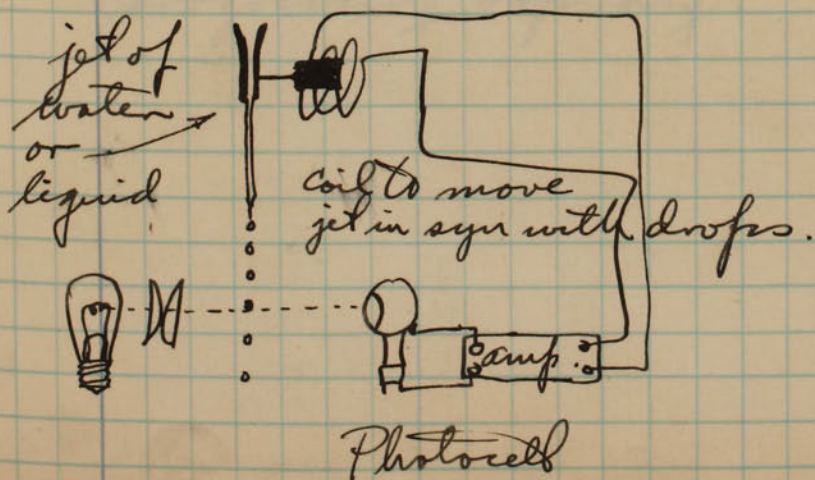 jet of
water
or
liquid
coil to move
jet in syn with drops.
amp
Photocell